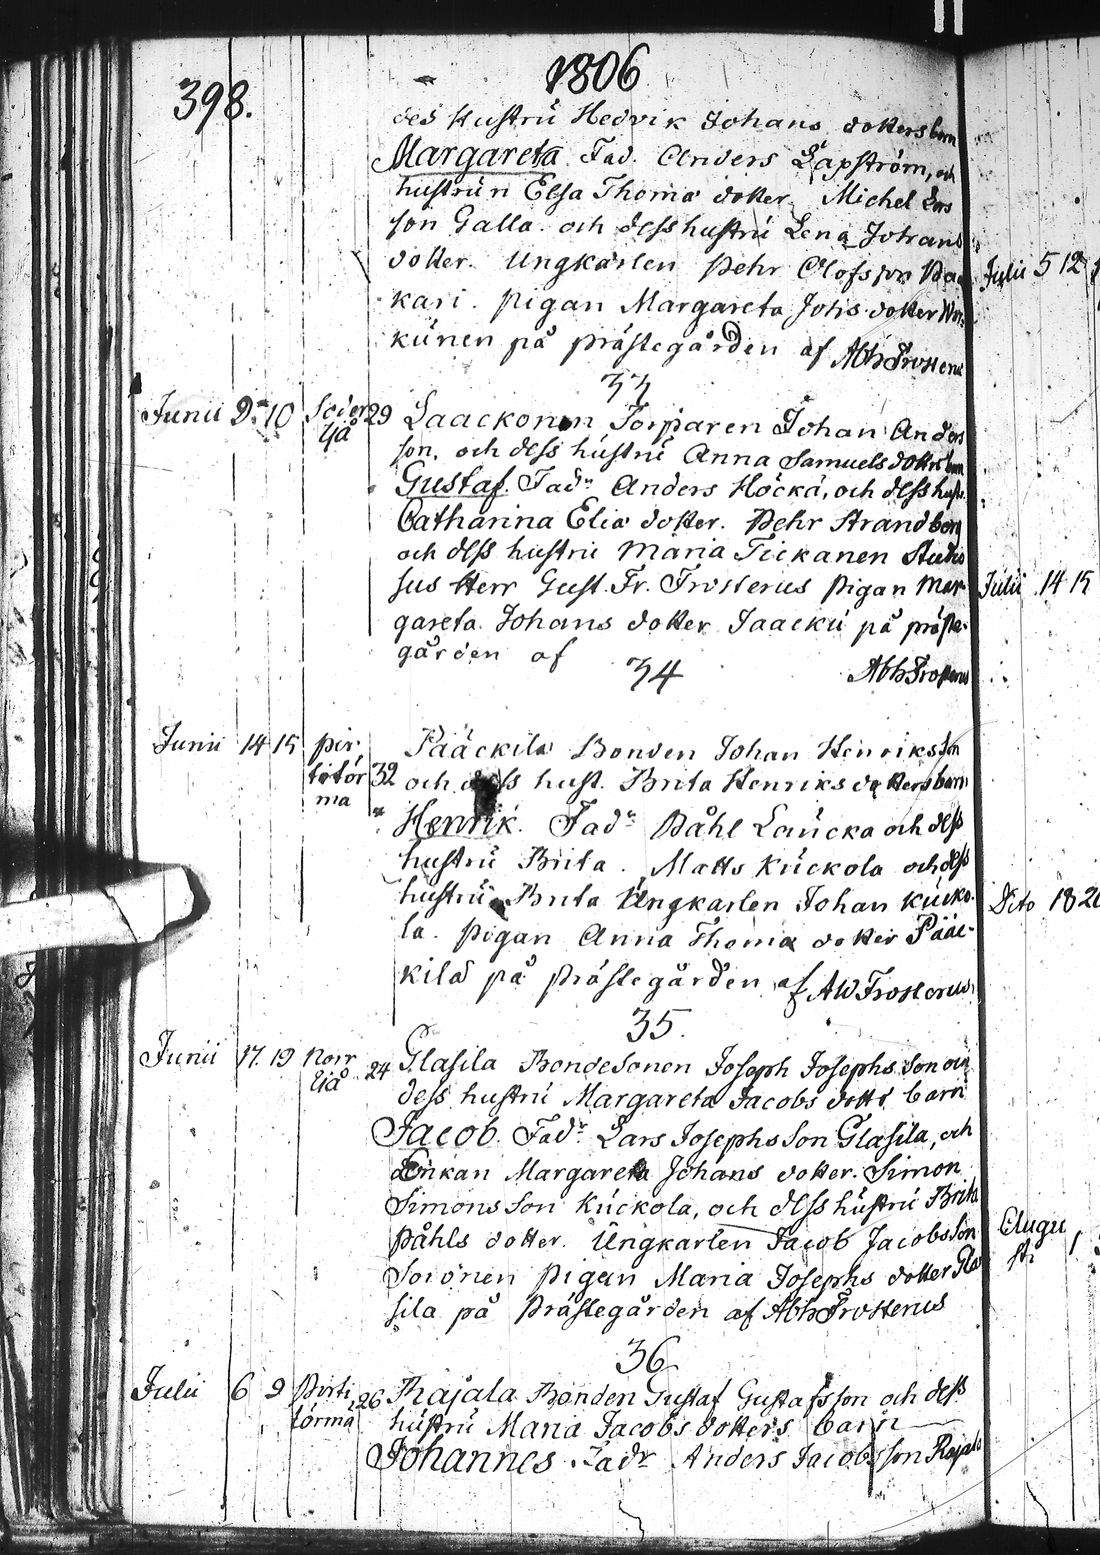 398. 1806
des Hustrú Hedvik Johans dotters barn
Margareta Fad. Anders Lapström, och
hustrún Elsa Thoma dotter. Michel Lars
son Galla. och dess hustrú Lena Johans
dotter. Ungkarlen Pehr Olofsson
kari. Pigan Margareta Johs dotter
künen på prästegården af Abh Frosterus
33
Junii 9. 10 Söder 29 Laackonen Torparen Johan Anders
ljå son, och dess hústrú Anna Samuels dotters barn
Gustaf. Fadr Anders Höckä, och dess hust.
Catharina Elia dotter. Pehr Strandberg
och dess hustrú Maria Tickanen Studio
sus Herr Gust. Fr. Frosterus Pigan Mar-
gareta Johans dotter Jaackú på präste-
gården af Abh Frosterus
34
Junii 14 15 pir Pääckilä Bonden Johan Henriksson
titör 32 och dess hust. Brita Henriks dotters barn
ma
Henrik. Fadr Påhl Laúcka och dess
hustrú Brita. Matts Kúckola och dess
hustrú Brita Ungkarlen Johan Kúcko-
la. Pigan Anna Thoma dotter Pääc-
kilä på Prästegården af AW Frosterus
35.
Junii 17. 19 Norr 24 Glasila Bondesonen Joseph Josephs son och
ljå dess hustrú Margareta Jacobs dottr barn
Jacob. Fadr Lars Josephs Son Glasila, och
Enkan Margareta Johans dotter. Simon
Simons Son Kúckola, och dess hústrú Brita
Påhls dotter. Ungkarlen Jacob Jacobs Son
Soronen Pigan Maria Josephs dotter Gla
sila på Prästegården af Abh Frosterus
36
Julii 6 9 Pirti 26 Rajala Bonden Gustaf Gustafs son och dess
törmä hústrú Maria Jacobs dotters barn
Johannes Fadr Anders Jacobs son Rajala
Julii 5 12
Julii 14 15
Dito 18 20
Augu
sti